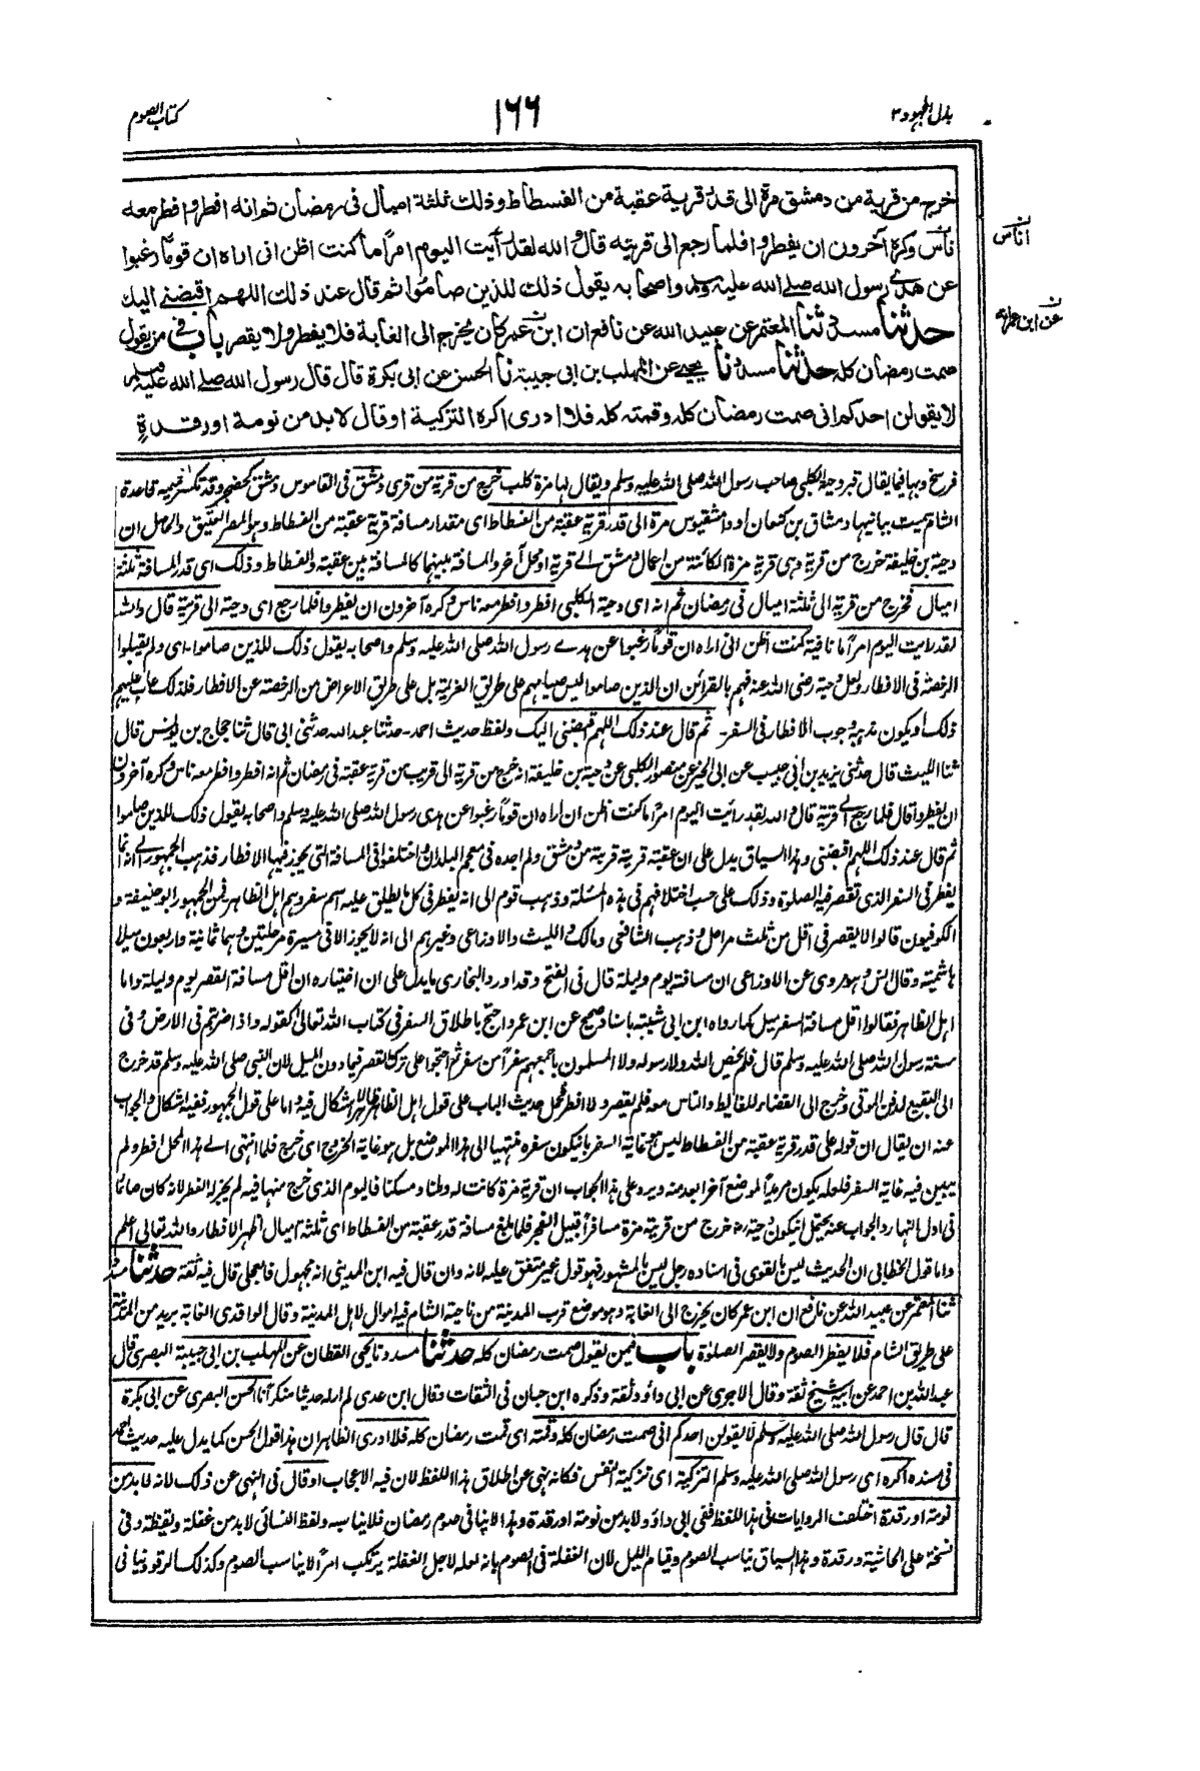 بذل المجهود ٣
١٦٦
كتاب الصوم
خرج من قرية من دمشق مرة الى قدر قرية عقبة من الفسطاط وذلك ثلثة اميال فى رمضان ثم انه افطر وافطر معه
ناس وكره آخرون ان يفطروا فلما رجع الى قريته قال والله لقد رأيت اليوم امرا ما كنت اظن انى اراه ان قوما رغبوا
عن هدى رسول الله صلى الله عليه وسلم واصحابه يقول ذلك للذين صاموا ثم قال عند ذلك اللهم اقبضنى اليك
حدثنا مسدد ثنا المعتمر عن عبيد الله عن نافع ان ابن عمر كان يخرج الى الغابة فلا يفطر ولا يقصر باب فى من يقول
صمت رمضان كله حدثنا مسدد نا يحيى عن المهلب بن ابى حبيبة نا الحسن عن ابى بكرة قال قال رسول الله صلى الله عليه وسلم
لا يقولن احدكم انى صمت رمضان كله وقمته كله فلا ادرى اكره التزكية او قال لا بد من نومة او رقدة
ن اناس
ن عن ابن عمر انه
فرسخ وبها فيما يقال قبر دحية الكلبى صاحب رسول الله صلى الله عليه وسلم ويقال لها مزة كلب خرج من قرية من قرى دمشق فى القاموس دمشق كحضجر وقد تكسر ميمه قاعدة
الشام سميت ببانيها دمشاق بن كنعان او دامشقيوس مرة الى قدر قرية عقبة من الفسطاط اى مقدار مسافة قرية عقبة من الفسطاط وهو المصر العتيق والحاصل ان
دحية بن خليفة خرج من قرية وهى قرية مزة الكائنة من اعمال دمشق الى قرية او محل آخر والمسافة بينهما كالمسافة بين عقبة والفسطاط وذلك اى قدر المسافة ثلثة
اميال فخرج من قرية الى ثلثة اميال فى رمضان ثم انه اى دحية الكلبى افطر وافطر معه ناس وكره آخرون ان يفطروا فلما رجع اى دحية الى قريته قال والله
لقد رأيت اليوم امرا ما نافية كنت اظن انى اراه ان قوما رغبوا عن هدى رسول الله صلى الله عليه وسلم واصحابه يقول ذلك للذين صاموا۔ اى ولم يقبلوا
الرخصة فى الافطار ولعل دحية رضى الله عنه فهم بالقرائن ان الذين صاموا ليس صيامهم على طريق العزيمة بل على طريق الاعراض من الرخصة عن الافطار فلذلك عاب عليهم
ذلك او يكون مذهبه وجوب الافطار فى السفر۔ ثم قال عند ذلك اللهم اقبضنى اليك ولفظ حديث احمد۔ حدثنا عبد الله حدثنى ابى قال ثنا حجاج بن يونس قال
ثنا الليث قال حدثنى يزيد بن ابى حبيب عن ابى الخير عن منصور الكلبى عن دحية بن خليفة انه خرج من قرية الى قريب من قرية عقبة فى رمضان ثم انه افطر وافطر معه ناس وكره آخرون
ان يفطروا قال فلما رجع الى قرية قال والله لقد رأيت اليوم امرا ما كنت اظن ان اراه ان قوما رغبوا عن هدى رسول الله صلى الله عليه وسلم واصحابه يقول ذلك للذين صاموا
ثم قال عند ذلك اللهم اقبضنى وهذا السياق يدل على ان عقبة قرية قريبة من دمشق ولم اجده فى معجم البلدان واختلفوا فى المسافة التى يجوز فيها الافطار فذهب الجمهور الى انه انما
يفطر فى السفر الذى تقصر فيه الصلوة وذلك على حسب اختلافهم فى هذه المسئلة وذهب قوم الى انه يفطر فى كل ما يطلق عليه اسم سفر وهم اهل الظاهر فمن الجمهور ابو حنيفة و
الكوفيون قالوا لا يقصر فى اقل من ثلث مراحل وذهب الشافعى ومالك والليث والاوزاعى وغيرهم الى انه لا يجوز الا فى مسيرة مرحلتين وهما ثمانية واربعون ميلا
هاشمية وقال انس وهو مروى عن الاوزاعى ان مسافته يوم وليلة قال فى الفتح وقد اورد البخارى ما يدل على ان اختياره ان اقل مسافة القصر يوم وليلة واما
اهل الظاهر فقالوا اقل مسافة السفر ميل كما رواه ابن ابى شيبة باسناد صحيح عن ابن عمر واحتج باطلاق السفر فى كتاب الله تعالى كقوله واذا ضربتم فى الارض وفى
سنة رسول الله صلى الله عليه وسلم قال فلم يخص الله ولا رسوله ولا المسلمون باجمعهم سفرا من سفر ثم احتجوا على ترك القصر فيما دون الميل لان النبى صلى الله عليه وسلم قد خرج
الى البقيع لدفن الموتى وخرج الى القضاء للغائط والناس معه فلم يقصر ولا افطر فحمل حديث الباب على قول اهل الظاهر ظاهر لا اشكال فيه واما على قول الجمهور ففيه اشكال والجواب
عنه ان يقال ان قوله على قدر قرية عقبة من الفسطاط ليس هو غاية السفر بان يكون سفره منتهيا الى هذا الموضع بل هو غاية الخروج اى خرج فلما انتهى الى هذا المحل افطر ولم
يبين فيه غاية السفر فلعله يكون مريدا لموضع آخر ابعد منه ويرد على هذا الجواب ان قرية مزة كانت له وطنا ومسكنا فاليوم الذى خرج منها فيه لم يجز له الفطر لانه كان صائما
فى اول النهار والجواب عنه يحتمل ان يكون دحية رضـ خرج من قرية مزة مسافرا قبيل الفجر فلما بلغ مسافة قدر عقبة من الفسطاط اى ثلثة اميال اظهر الافطار والله تعالى اعلم
واما قول الخطابى ان الحديث ليس بالقوى فى اسناده رجل ليس بالمشهور فهو قول غير متفق عليه لانه وان قال فيه ابن المدينى انه مجهول فالعجلى قال فيه ثقة حدثنا مسدد
ثنا المعتمر عن عبيد الله عن نافع ان ابن عمر كان يخرج الى الغابة وهو موضع قرب المدينة من ناحية الشام فيه اموال لاهل المدينة وقال الواقدى الغابة بريد من المدينة
على طريق الشام فلا يفطر الصوم ولا يقصر الصلوة باب فيمن يقول صمت رمضان كله حدثنا مسدد نا يحيى القطان عن المهلب بن ابى حبيبة البصرى قال
عبد الله بن احمد عن ابيه شيخ ثقة وقال الاجرى عن ابى داود ثقة وذكره ابن حبان فى الثقات وقال ابن عدى لم ار له حديثا منكرا نا الحسن البصرى عن ابى بكرة
قال قال رسول الله صلى الله عليه وسلم لا يقولن احدكم انى صمت رمضان كله وقمته اى قمت رمضان كله فلا ادرى الظاهر ان هذا قول الحسن كما يدل عليه حديث احمد
فى مسنده اكره اى رسول الله صلى الله عليه وسلم التزكية اى تزكية النفس فكانه نهى عن اطلاق هذا اللفظ لان فيه الاعجاب او قال فى النهى عن ذلك لانه لا بد من
نومة او رقدة اختلف الروايات فى هذا اللفظ ففى ابى داؤد ولا بد من نومة او رقدة وهذا لا يناسب فى صوم رمضان فلا يناسبه ولفظ النسائى لا بد من غفلة ويقظة وفى
نسخة على الحاشية ورقدة وهذا السياق يناسب الصوم وقيام الليل لان الغفلة فى الصوم بانه لعله لاجل الغفلة يرتكب امرا لا يناسب الصوم وكذلك الرقود ينافى